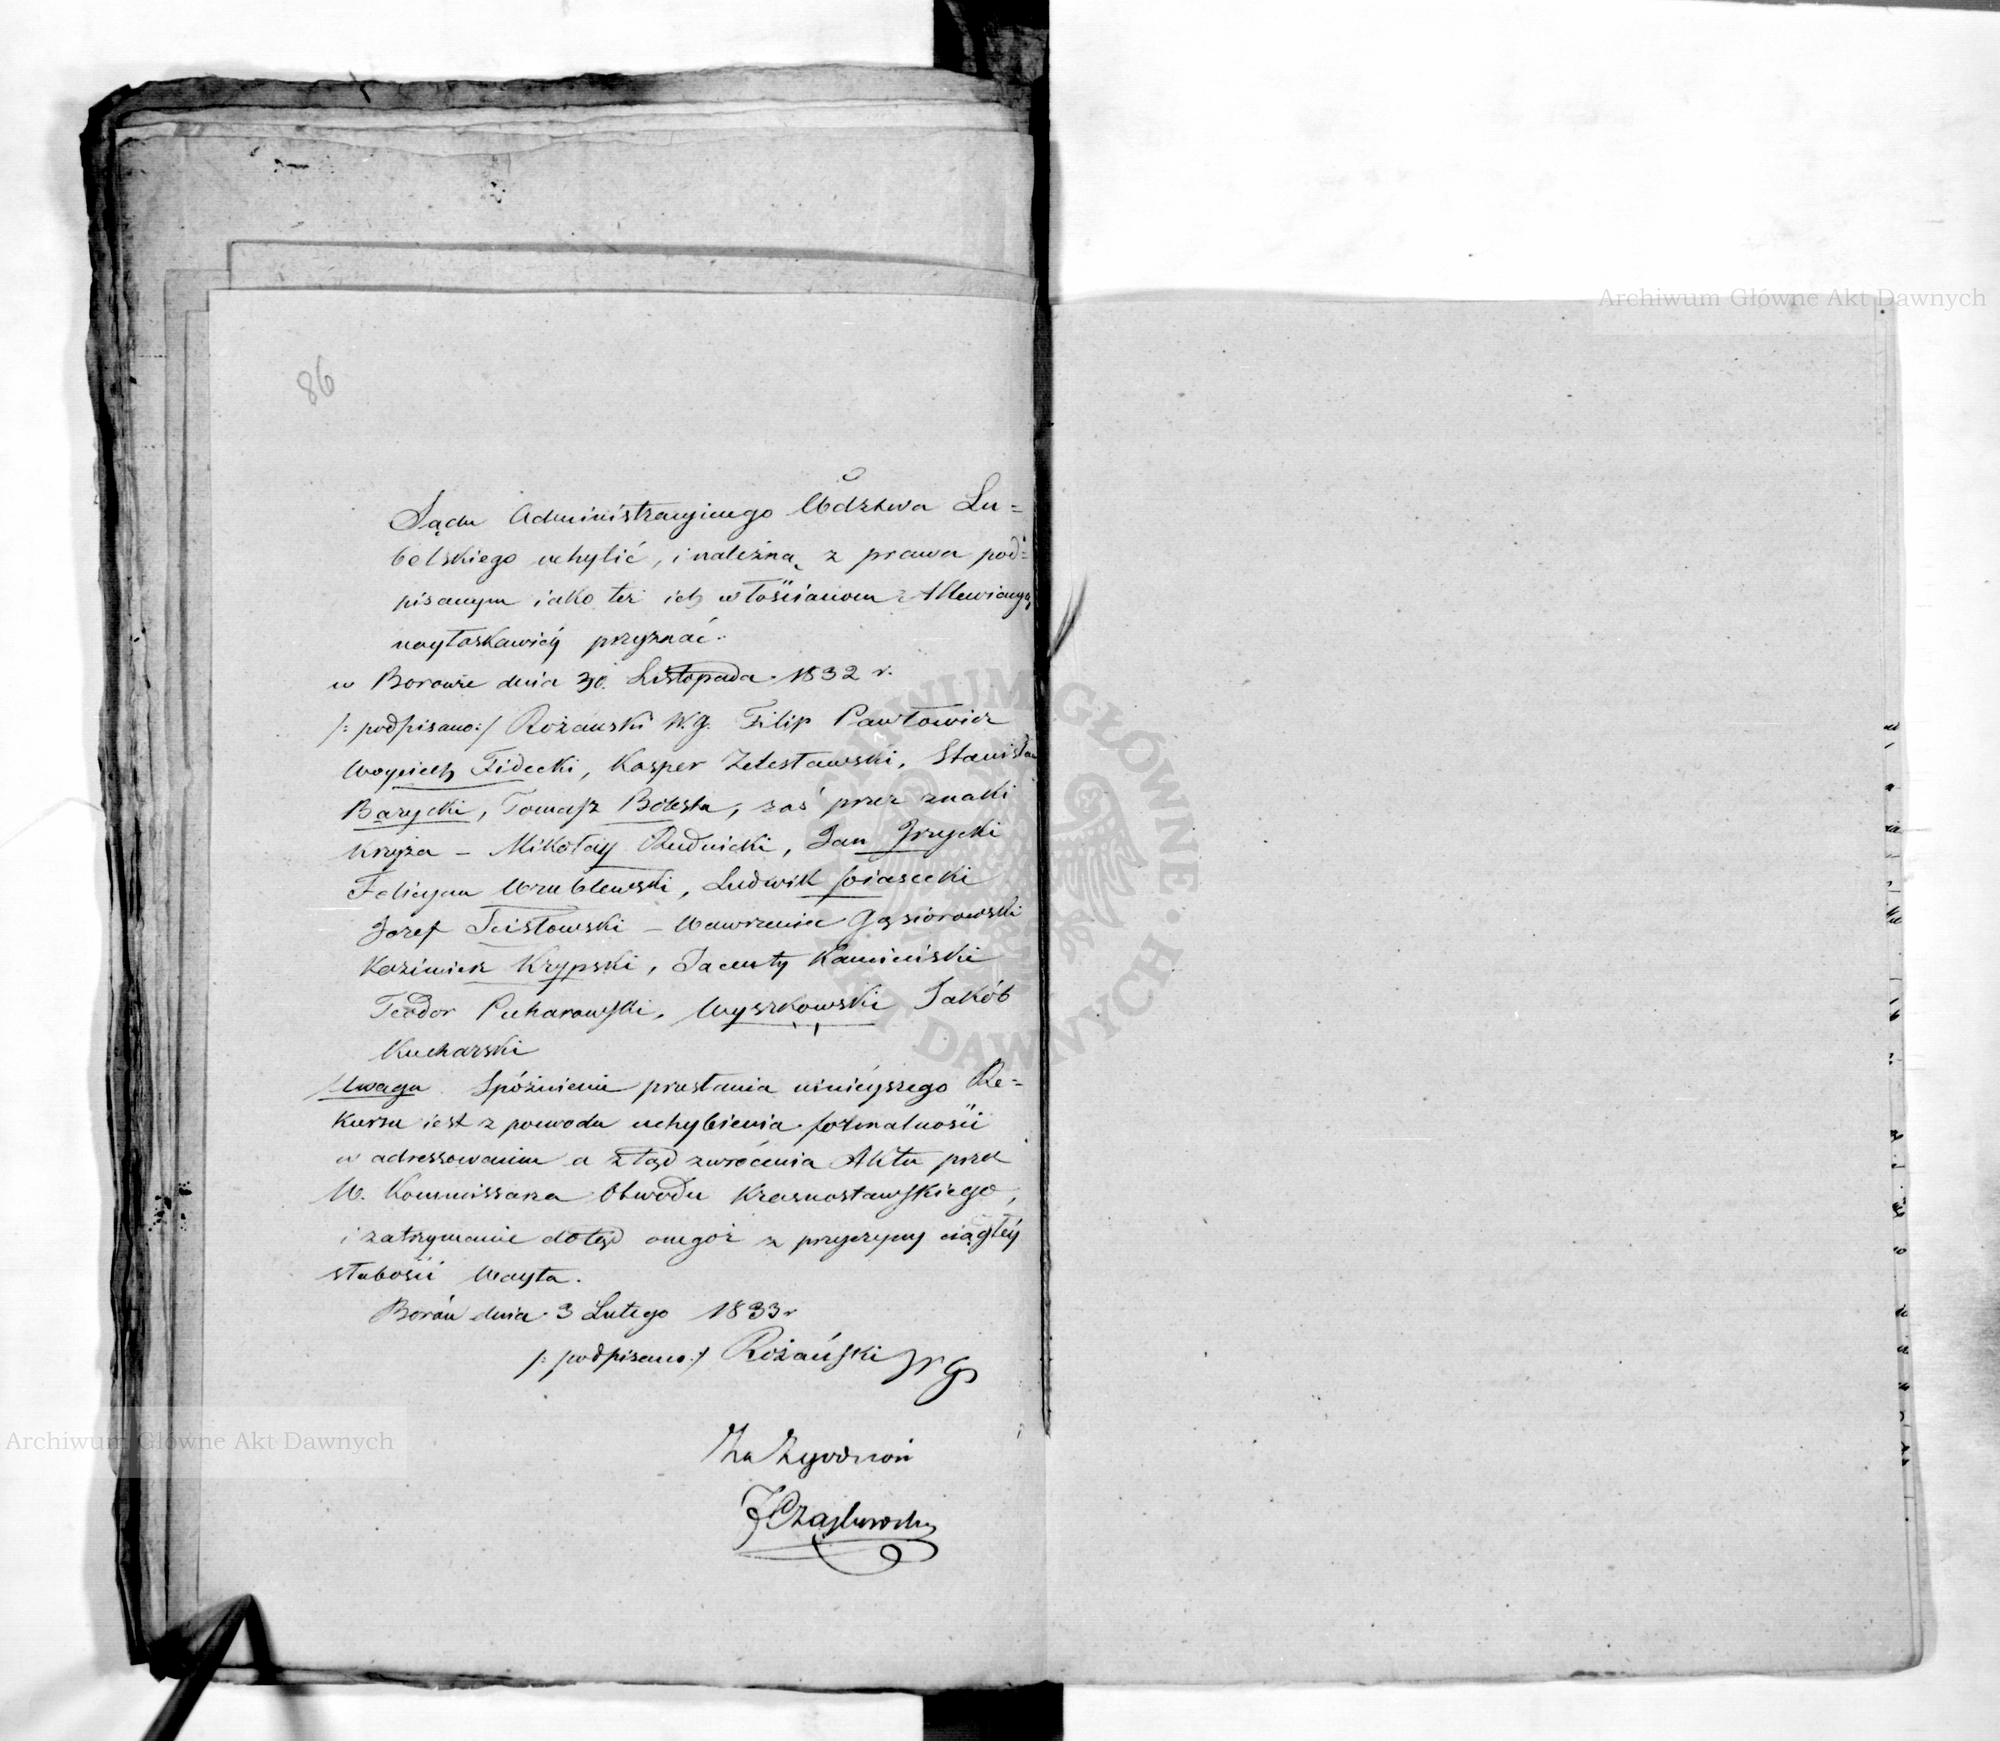 86
Sądu Administracyinego Wdztwa Lu=
belskiego uchylić, i należną z prawa pod=
pisanym iako też ich włościanom
nayłaskawiéy przyznać.
w Borowie dnia 30. Listopada 1832 r.
/: podpisano:/ Rożański W.G. Filip Pawłowicz
Woyciech Fidecki, Kasper Zelesławski, Stanisław
Barycki, Tomasz Bolesta, zaś przez znaki
Krzyża – Mikołay Rudnicki, Jan
Felicyan Wrublewski, Ludwik Piasecki
Jozef – Wawrzeniec Gąsiorowski
Kazimierz Krypski, Jacenty Kamiński
Teodor Pucharowski, Wyszkowski Jakób
Kucharski
Uwaga Spóźnienie przesłania ninieyszego Re=
kursu iest z powodu uchybienia formalności
w adressowaniu a ztąd zwrócenia Aktu przez
W. Kommissarza Obwodu Krasnostawskiego,
i zatrzymanie dotąd onegoż z przyczyny ciągłéy
słabości Woyta.
Borów dnia 3 Lutego 1833 r
/: podpisano:/ Rożański WG
Za Zgodność
Archiwum Główne Akt Dawnych
Archiwum Główne Akt Dawnych
ARCHIWUM GŁÓWNE AKT DAWNYCH